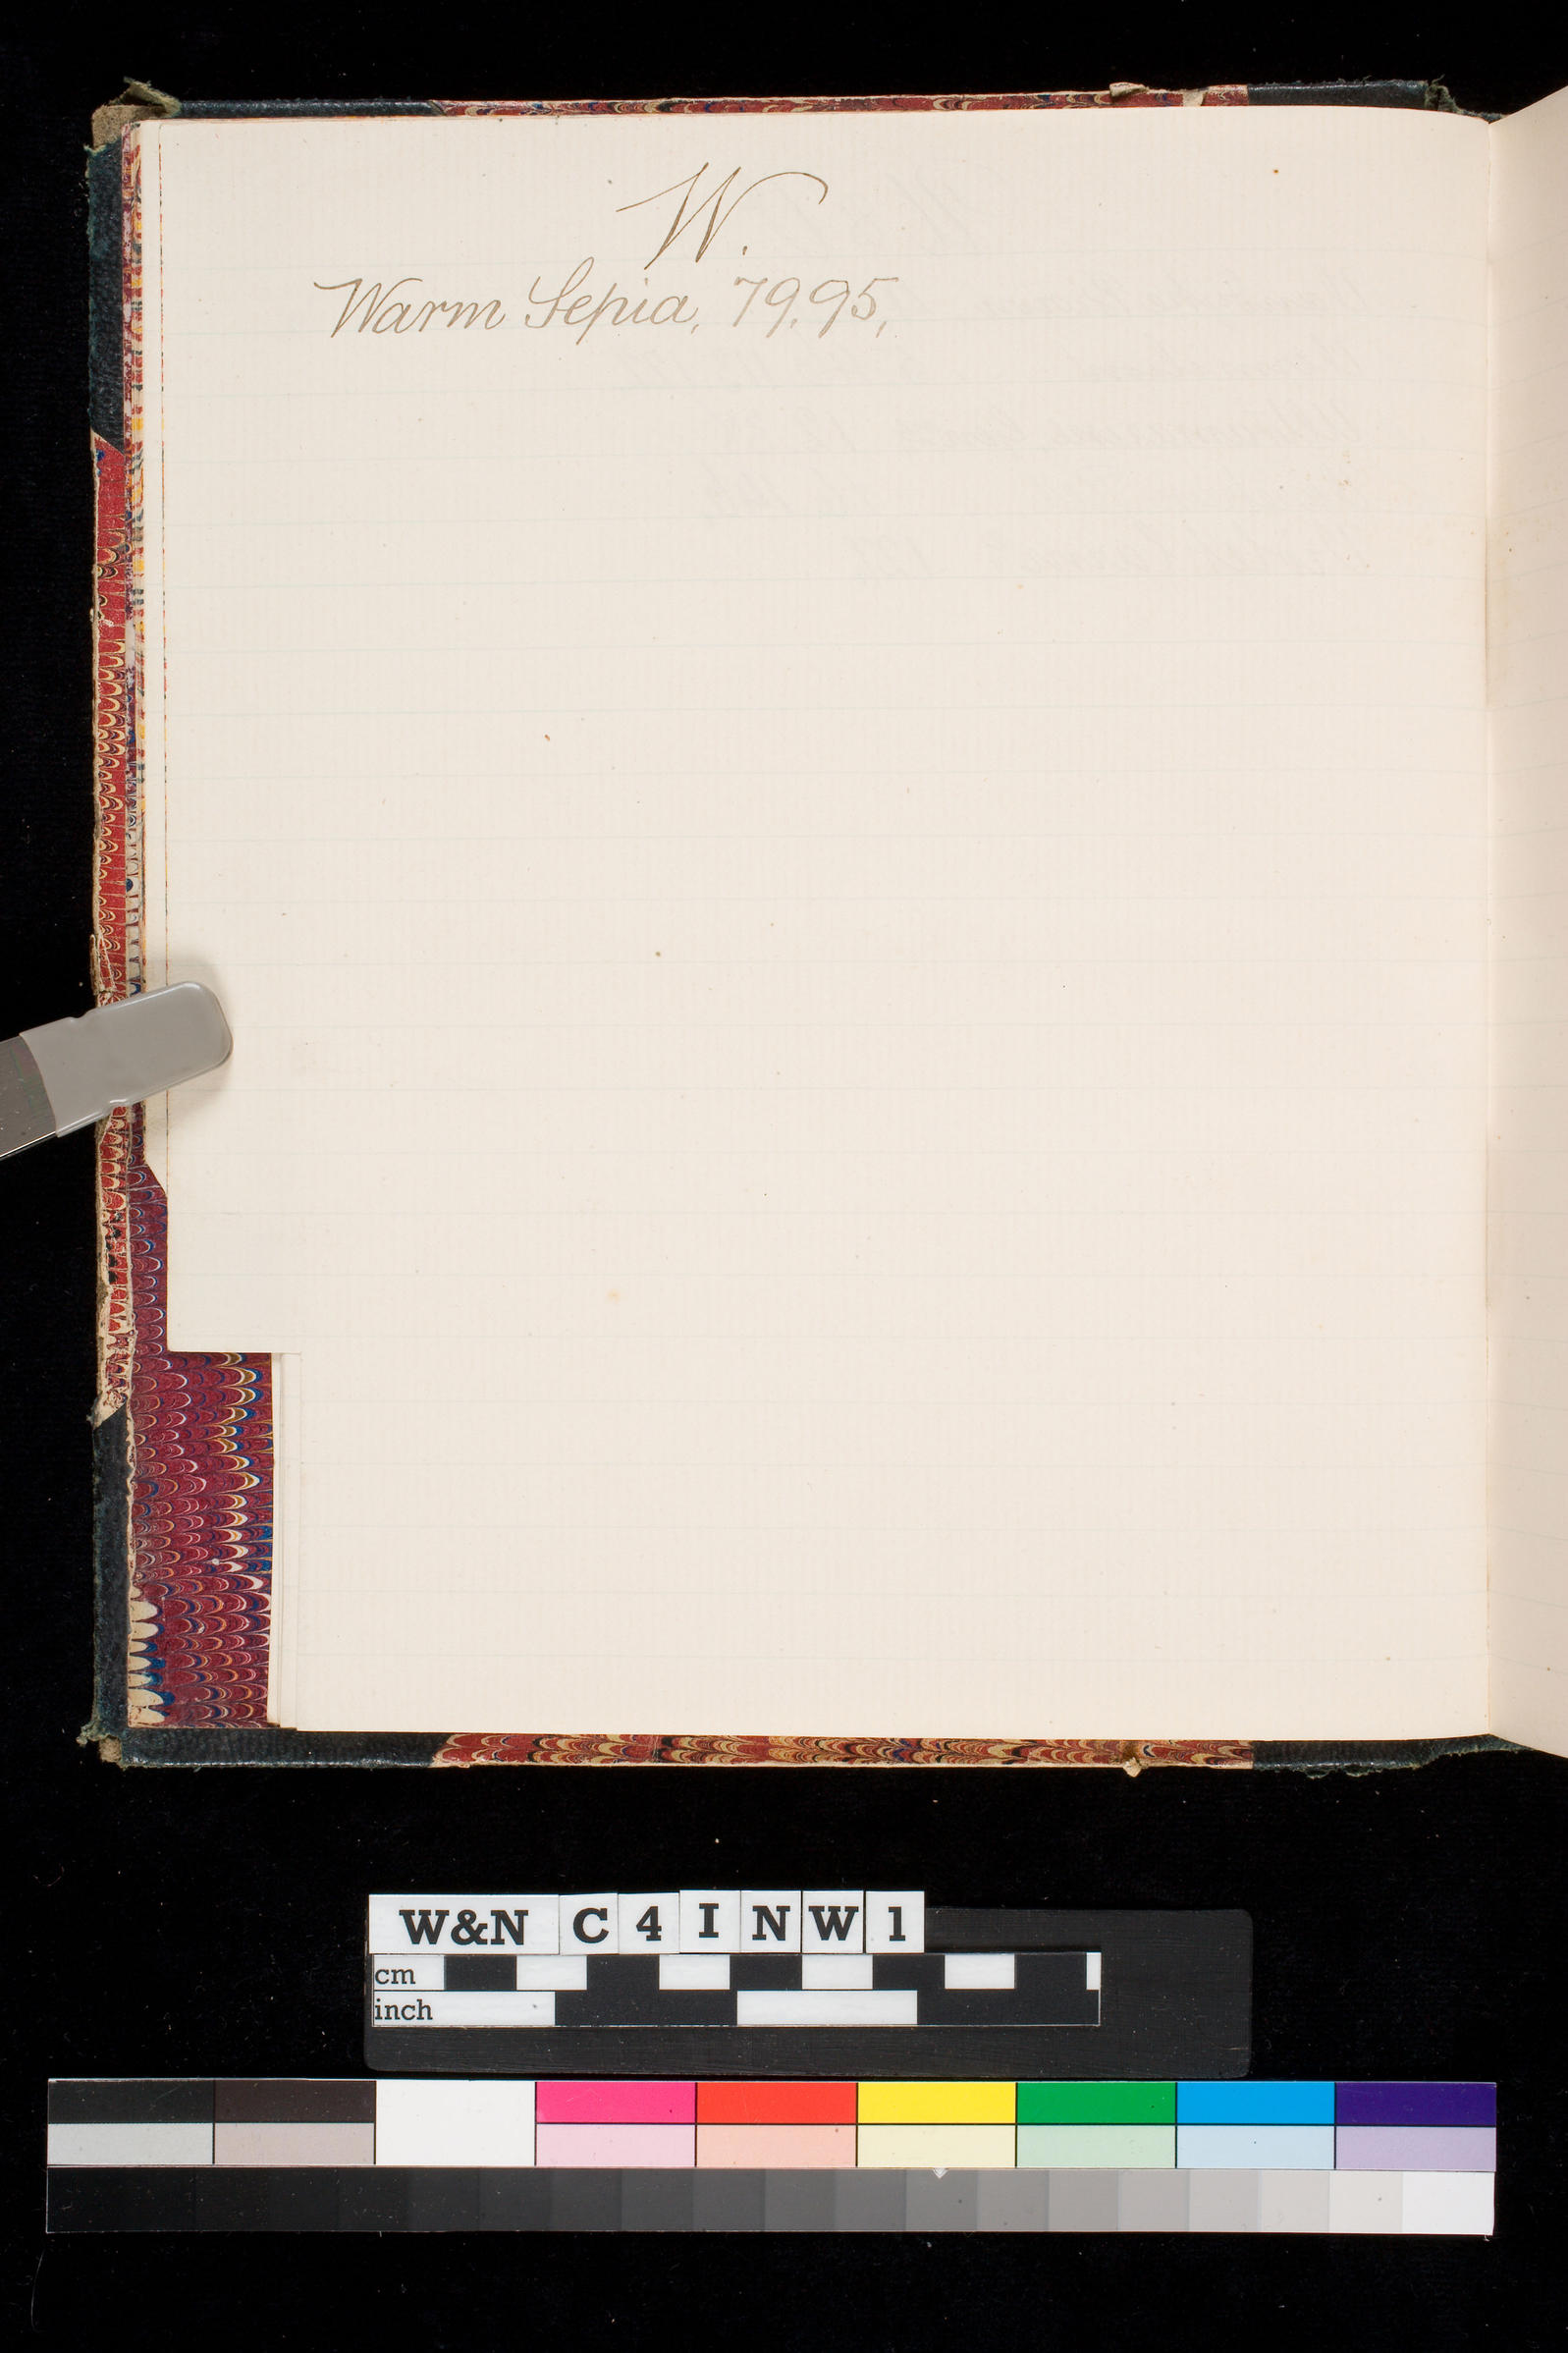 W.
Warm Sepia, 79, 95,
W&N C 4 I N W 1
cm
inch